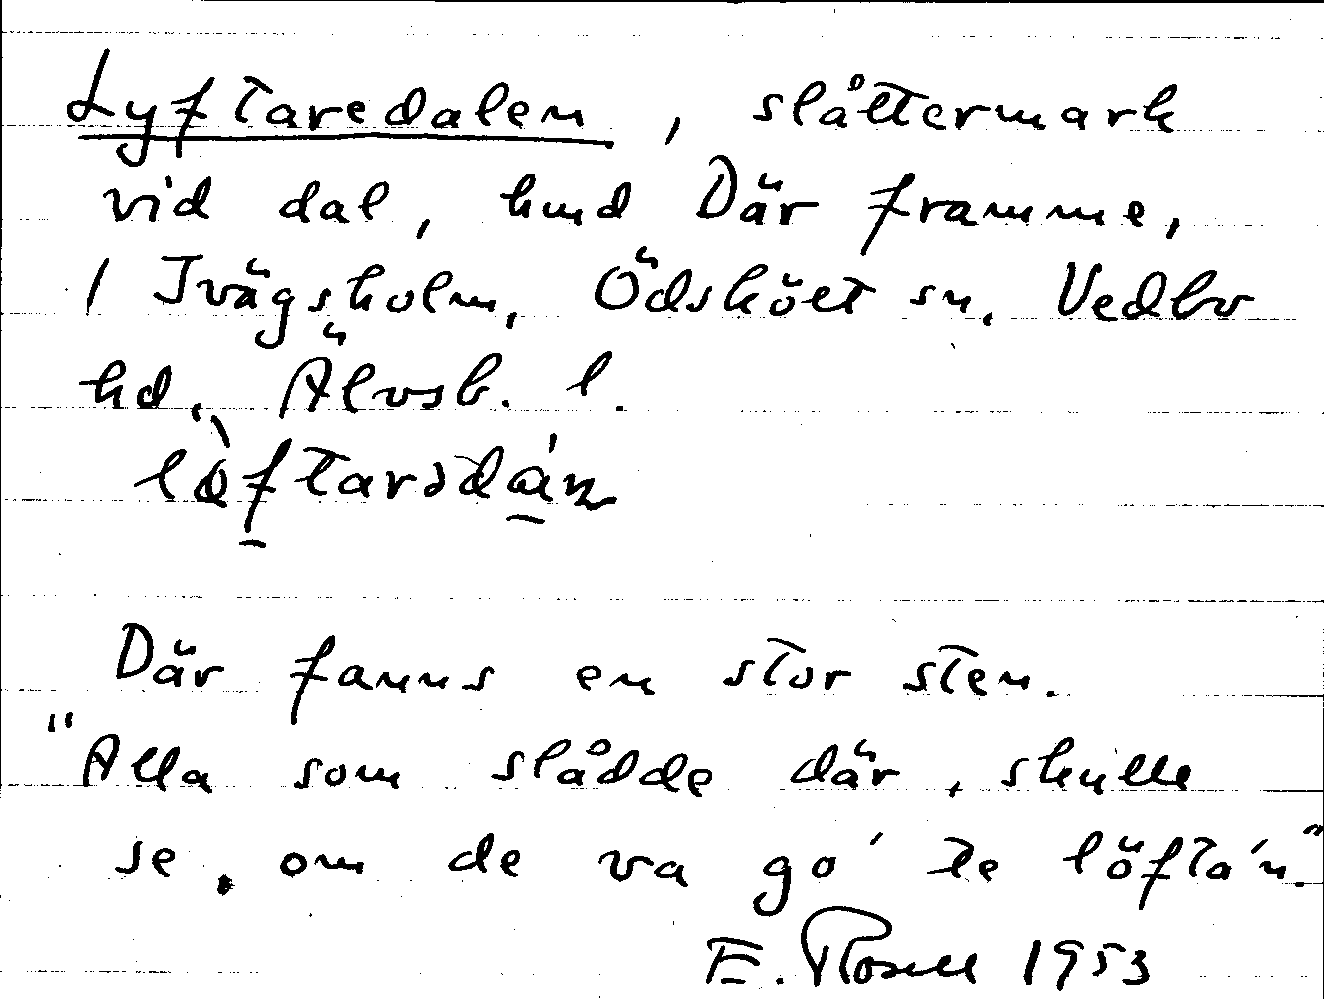 Lyftaredalen, slåttermark
vid dal, hmd Där framme,
1 Ivägsholm, Ödskölt sn, Vedbo
hd, Älvsb. l.
Där fanns en stor sten.
"Alla som slådde där, skulle
se, om de va go' te löfta'n."
E. Rosell 1953